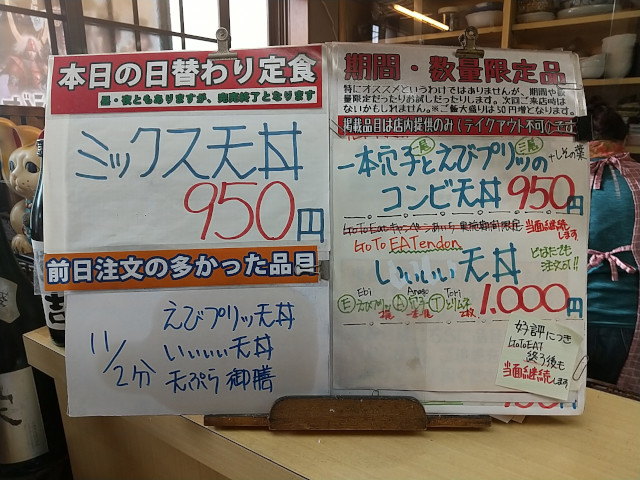 本日の日替わり定食
昼・夜ともありますが、完売終了となります
ミックス天丼
950円
前日注文の多かった品目
11/2分
えびプリッ天丼
いいいい天丼
天ぷら御膳
期間・数量限定品
特にオススメというわけではありませんが、期間や数
量限定だったりお試しだったりします。次回ご来店時は
ないかもしれません。※ご飯大盛りは50円増となります。
掲載品目は店内提供のみ(テイクアウト不可)
一本穴子とえびプリッの
二尾
+しその葉
コンビ天丼 950円
当面継続します
GoTo EATendon
どなたでも
注文OK!!
いいいい天丼
Ebi Anago Tori
E えびプリッ 二尾 A 穴子 一尾 T とりムネ 2枚
1,000円
好評につき
GoToEAT
終了後も
当面継続します